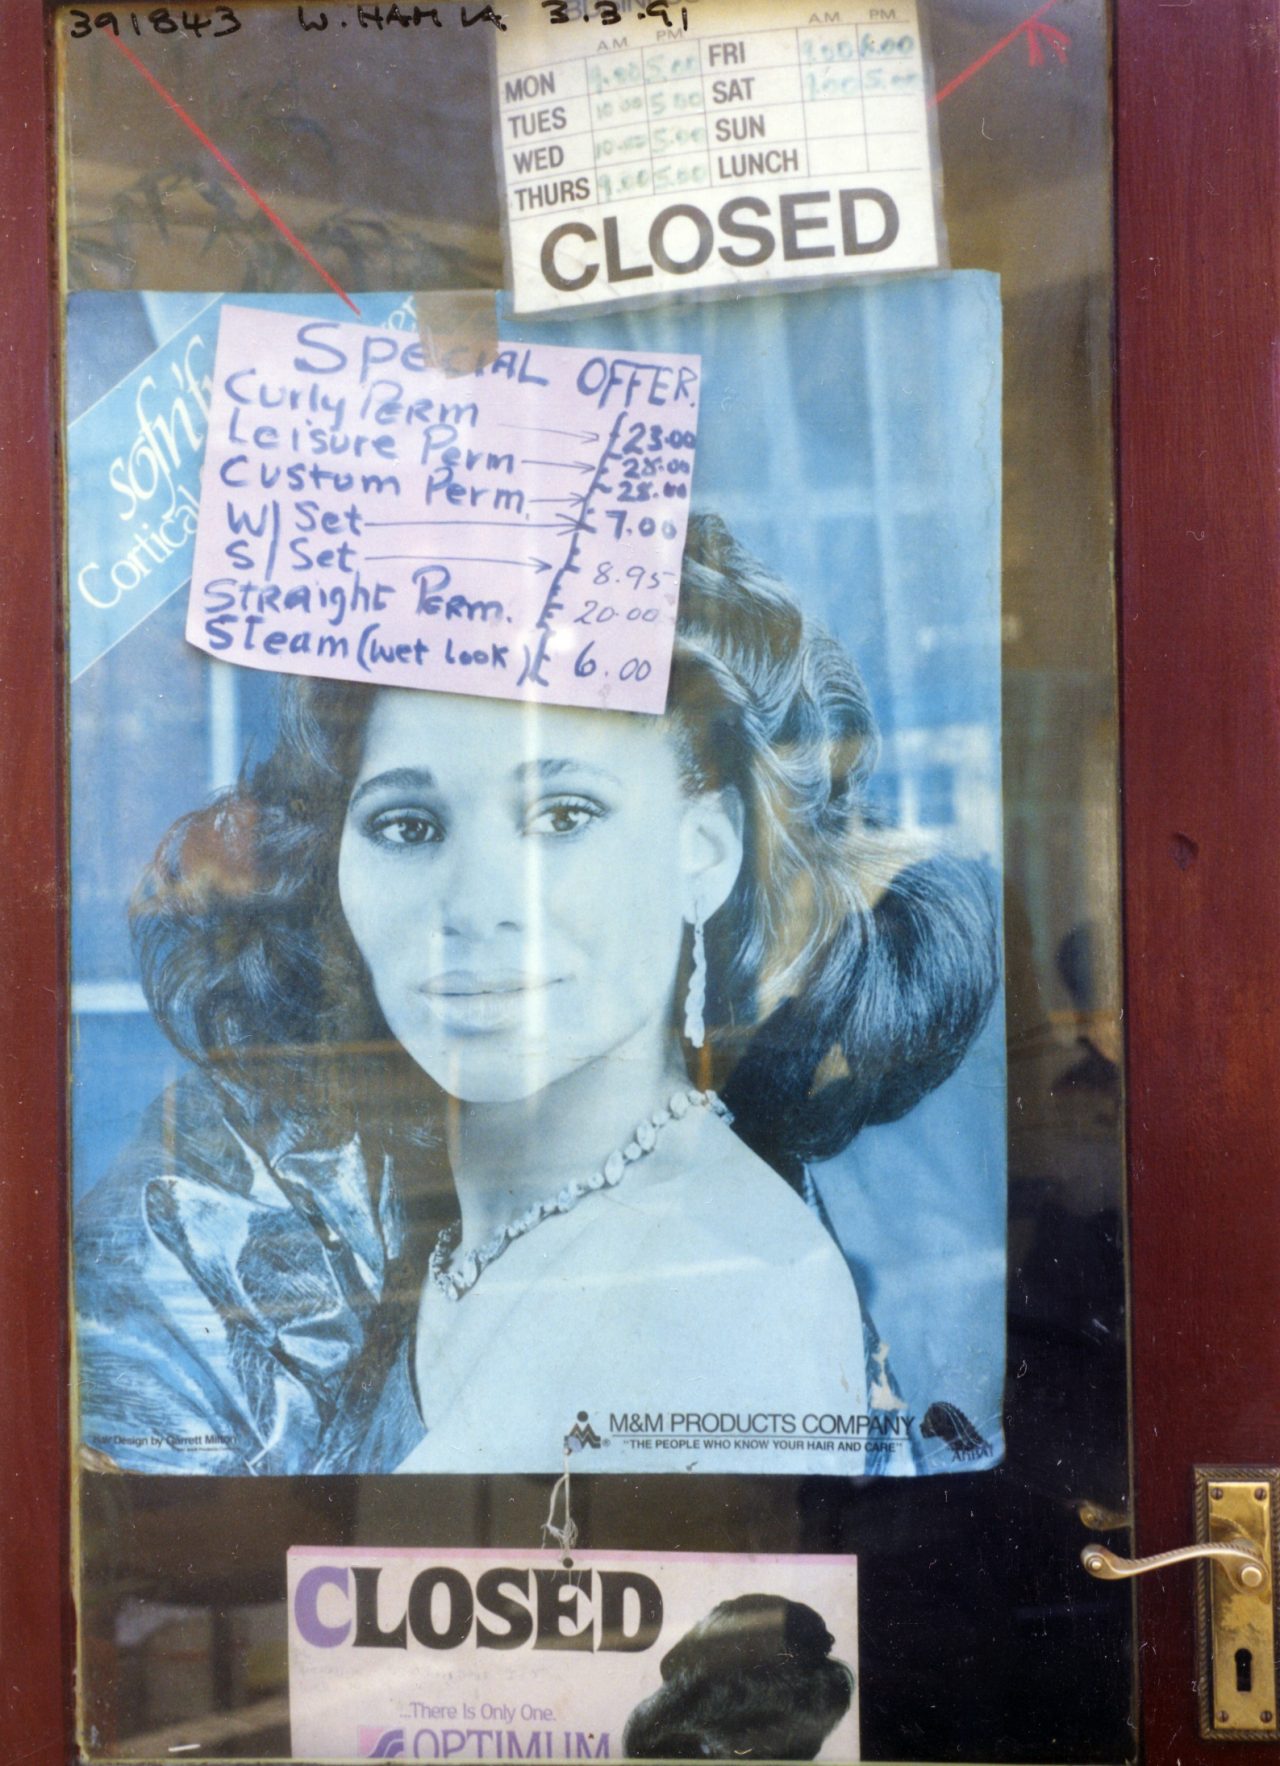 391843 W. HAM LA. 3.3.91
A.M. PM.
MON 5.00
TUES 10.00 5.00
WED 10.00 5.00
THURS 9.00 5.00
A.M. PM.
FRI 6.00
SAT 5.00
SUN
LUNCH
CLOSED
SPECIAL OFFER.
Curly PERM £23.00
Leisure Perm 28.00
Custom Perm. 28.00
W/Set £7.00
S/Set £ 8.95
STRAIGHT PERM. £ 20.00
STEAM (wet look) £ 6.00
sofn'f
Cortical
Hair Design by Garrett Milton
M&M PRODUCTS COMPANY
"THE PEOPLE WHO KNOW YOUR HAIR AND CARE"
CLOSED
...There Is Only One.
OPTIMUM